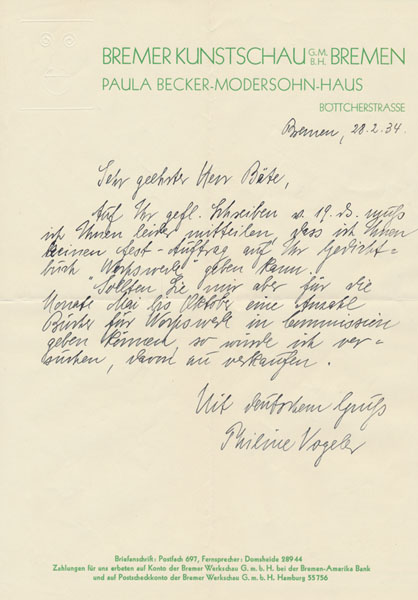 BREMER KUNSTSCHAU G.M.B.H. BREMEN
PAULA BECKER-MODERSOHN-HAUS
BÖTTCHERSTRASSE
Bremen, 28.2.34.
Sehr geehrter Herr Bäte,
Auf Ihr gefl. Schreiben v. 19. ds. muß
ich Ihnen leider mitteilen, dass ich Ihnen
keinen fest-Auftrag auf Ihr Gedicht-
buch Worpswede geben kann.
Sollten Sie mir aber für die
Monate Mai bis Oktober eine Anzahl
Bücher für Worpswede in Commission
geben können, so würde ich ver-
suchen, davon zu verkaufen.
Mit deutschem Gruß
Philine Vogeler
Briefanschrift: Postfach 697, Fernsprecher: Domsheide 28944
Zahlungen für uns erbeten auf Konto der Bremer Werkschau G. m. b. H. bei der Bremen-Amerika Bank
und auf Postscheckkonto der Bremer Werkschau G. m. b. H. Hamburg 55756